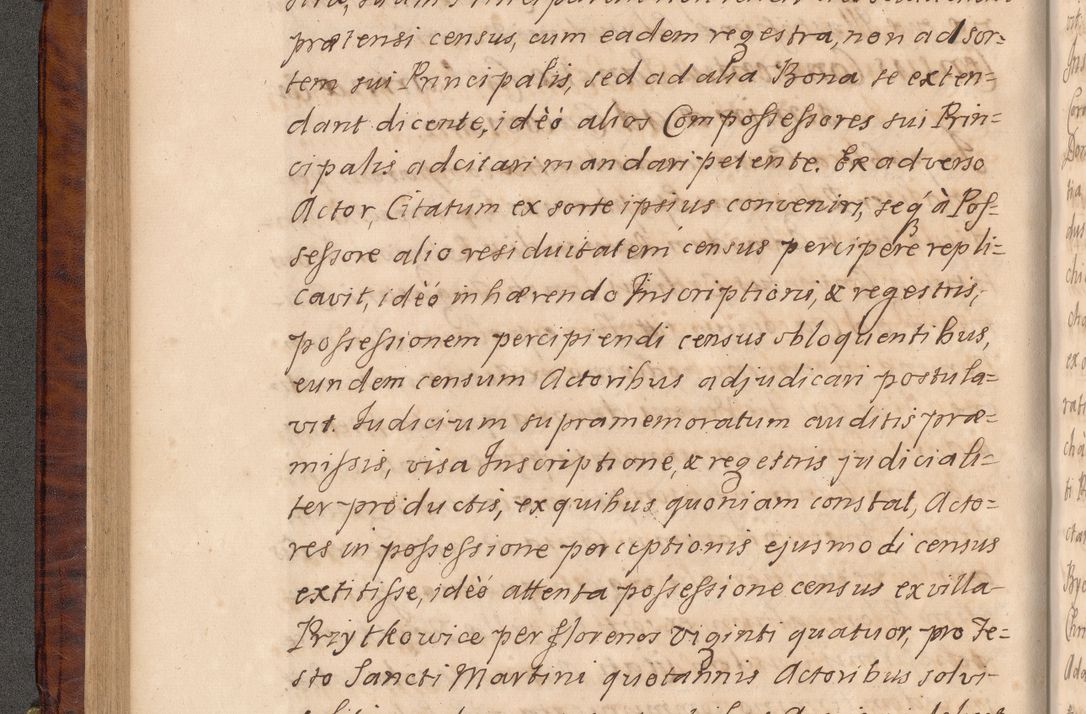 prætensi census, cum eadem regestra, non ad sor=
tem sui Principalis, sed ad alia Bona se exten=
dant dicente, idèo alios Compossessores sui Prin=
cipalis adcitari mandari petente. Ex adverso
Actor, Citatum ex sorte ipsius conveniri, seq à Pos=
sessore alio residuitatem census percipere repli=
cavit, idèo inhærendo Inscriptioni, & regestris,
possessionem percipiendi census obloquentibus,
eundem censum Actoribus adjudicari postula=
vit. Judicium supramemoratum auditis præ=
missis, visa Inscriptione, & regestris judiciali=
ter productis, ex quibus quoniam constat, Acto=
res in possessione perceptionis ejusmodi census
extitisse, idèo attenta possessione census ex villa
Przytkowice per florenos viginti quatuor, pro Fe=
sto Sancti Martini quotannis Actoribus solvi-